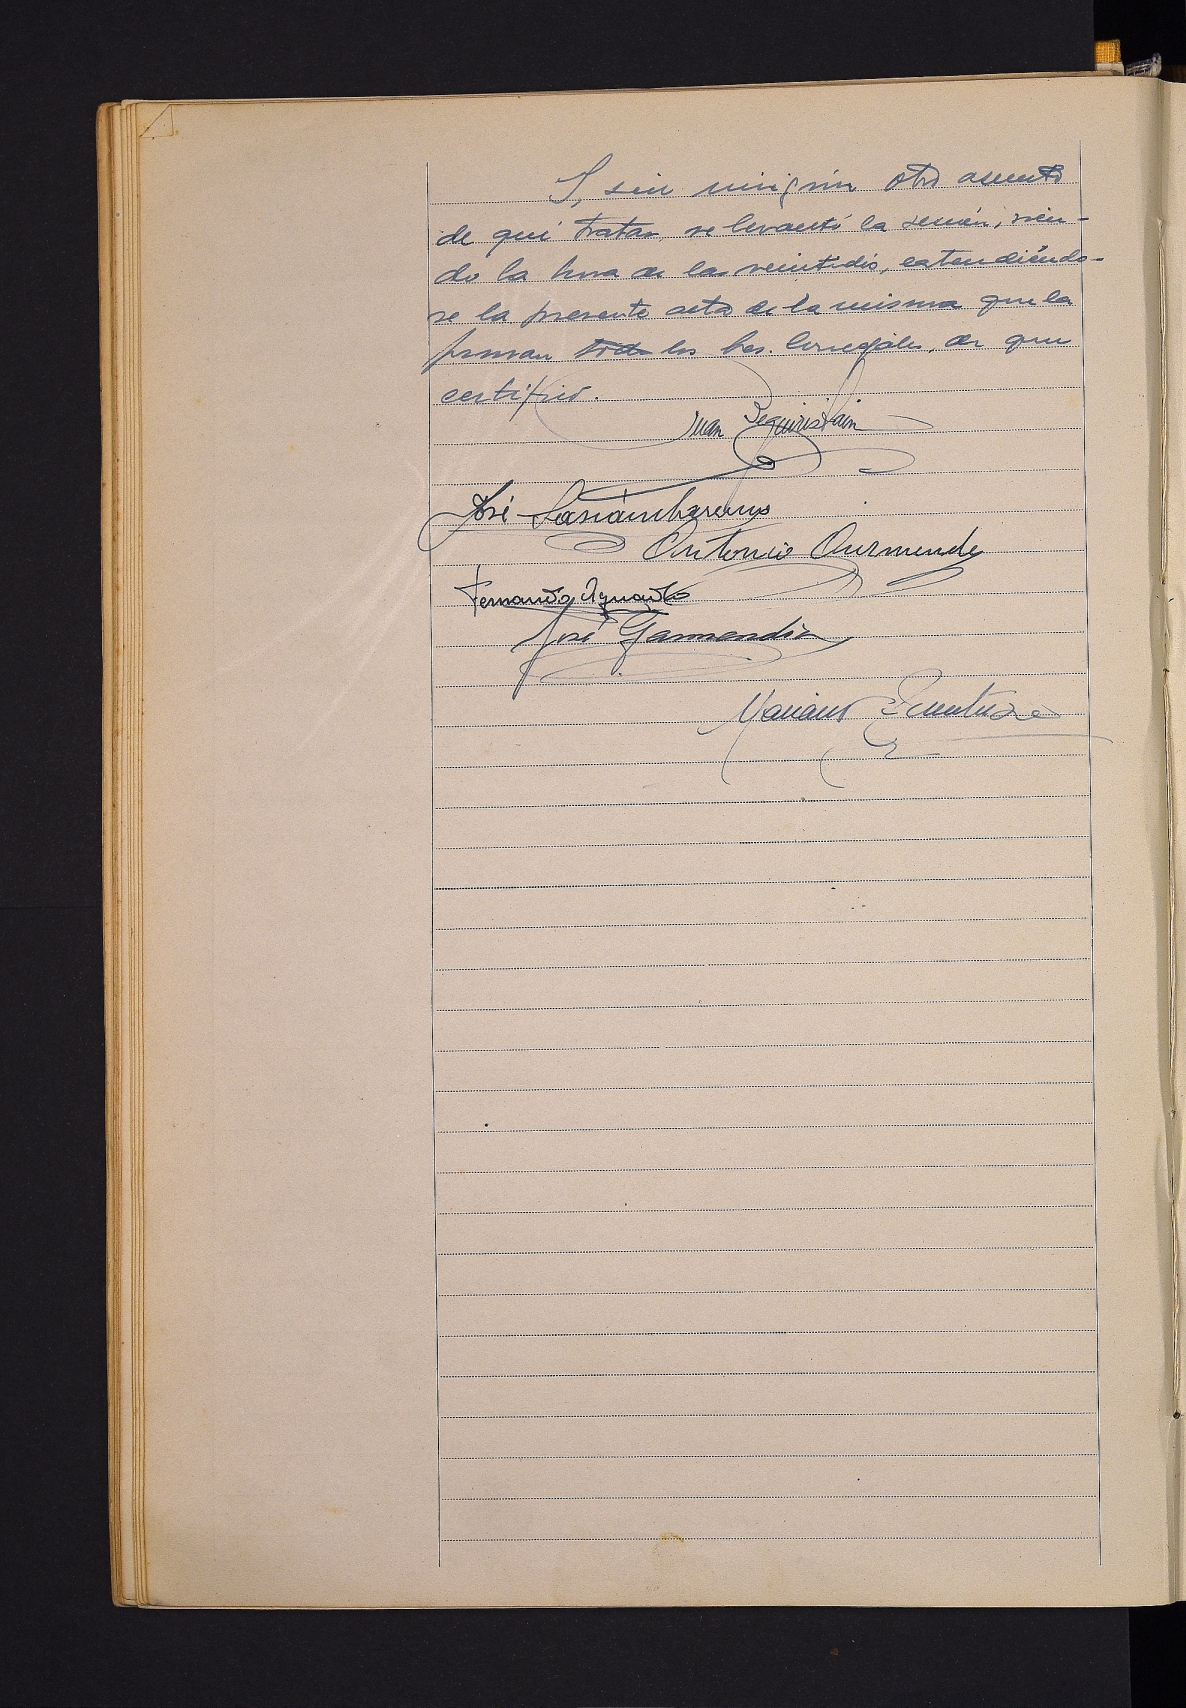 Y, sin ningún otro asunto
de qué tratar, se levantó la sesión, sien-
do la hora de las veintidós, extendiéndo-
se la presente acta de la misma que la
firman todos los Srs. Concejales, de que
certifico.
Juan Beguiristain
José
Antonio Aurmende
Fernando Aguado
José Garmendia
Mariano